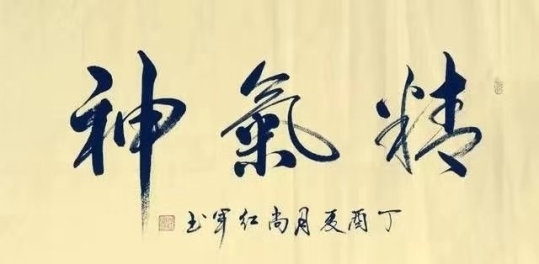 精氣神
丁酉夏月尚红军书